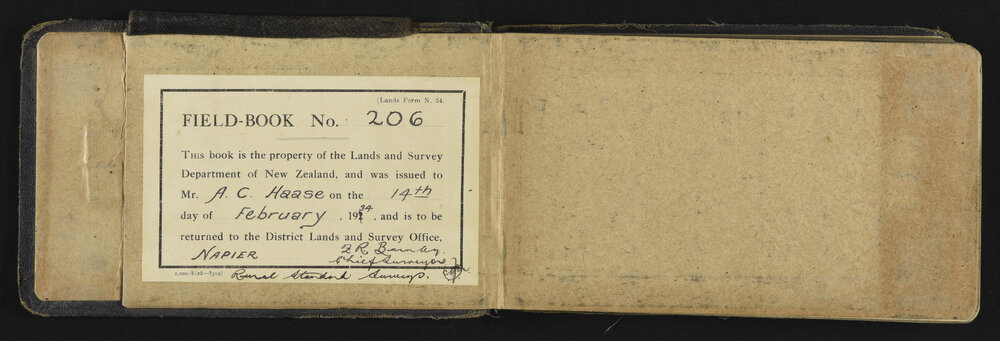 [Lands Form N. 24.
FIELD-BOOK No. 206
THIS book is the property of the Lands and Survey
Department of New Zealand, and was issued to
Mr. A. C. Haase on the 14th
day of February, 1934, and is to be
returned to the District Lands and Survey Office,
NAPIER
Chief Surveyor
Rural Standard Surveys.